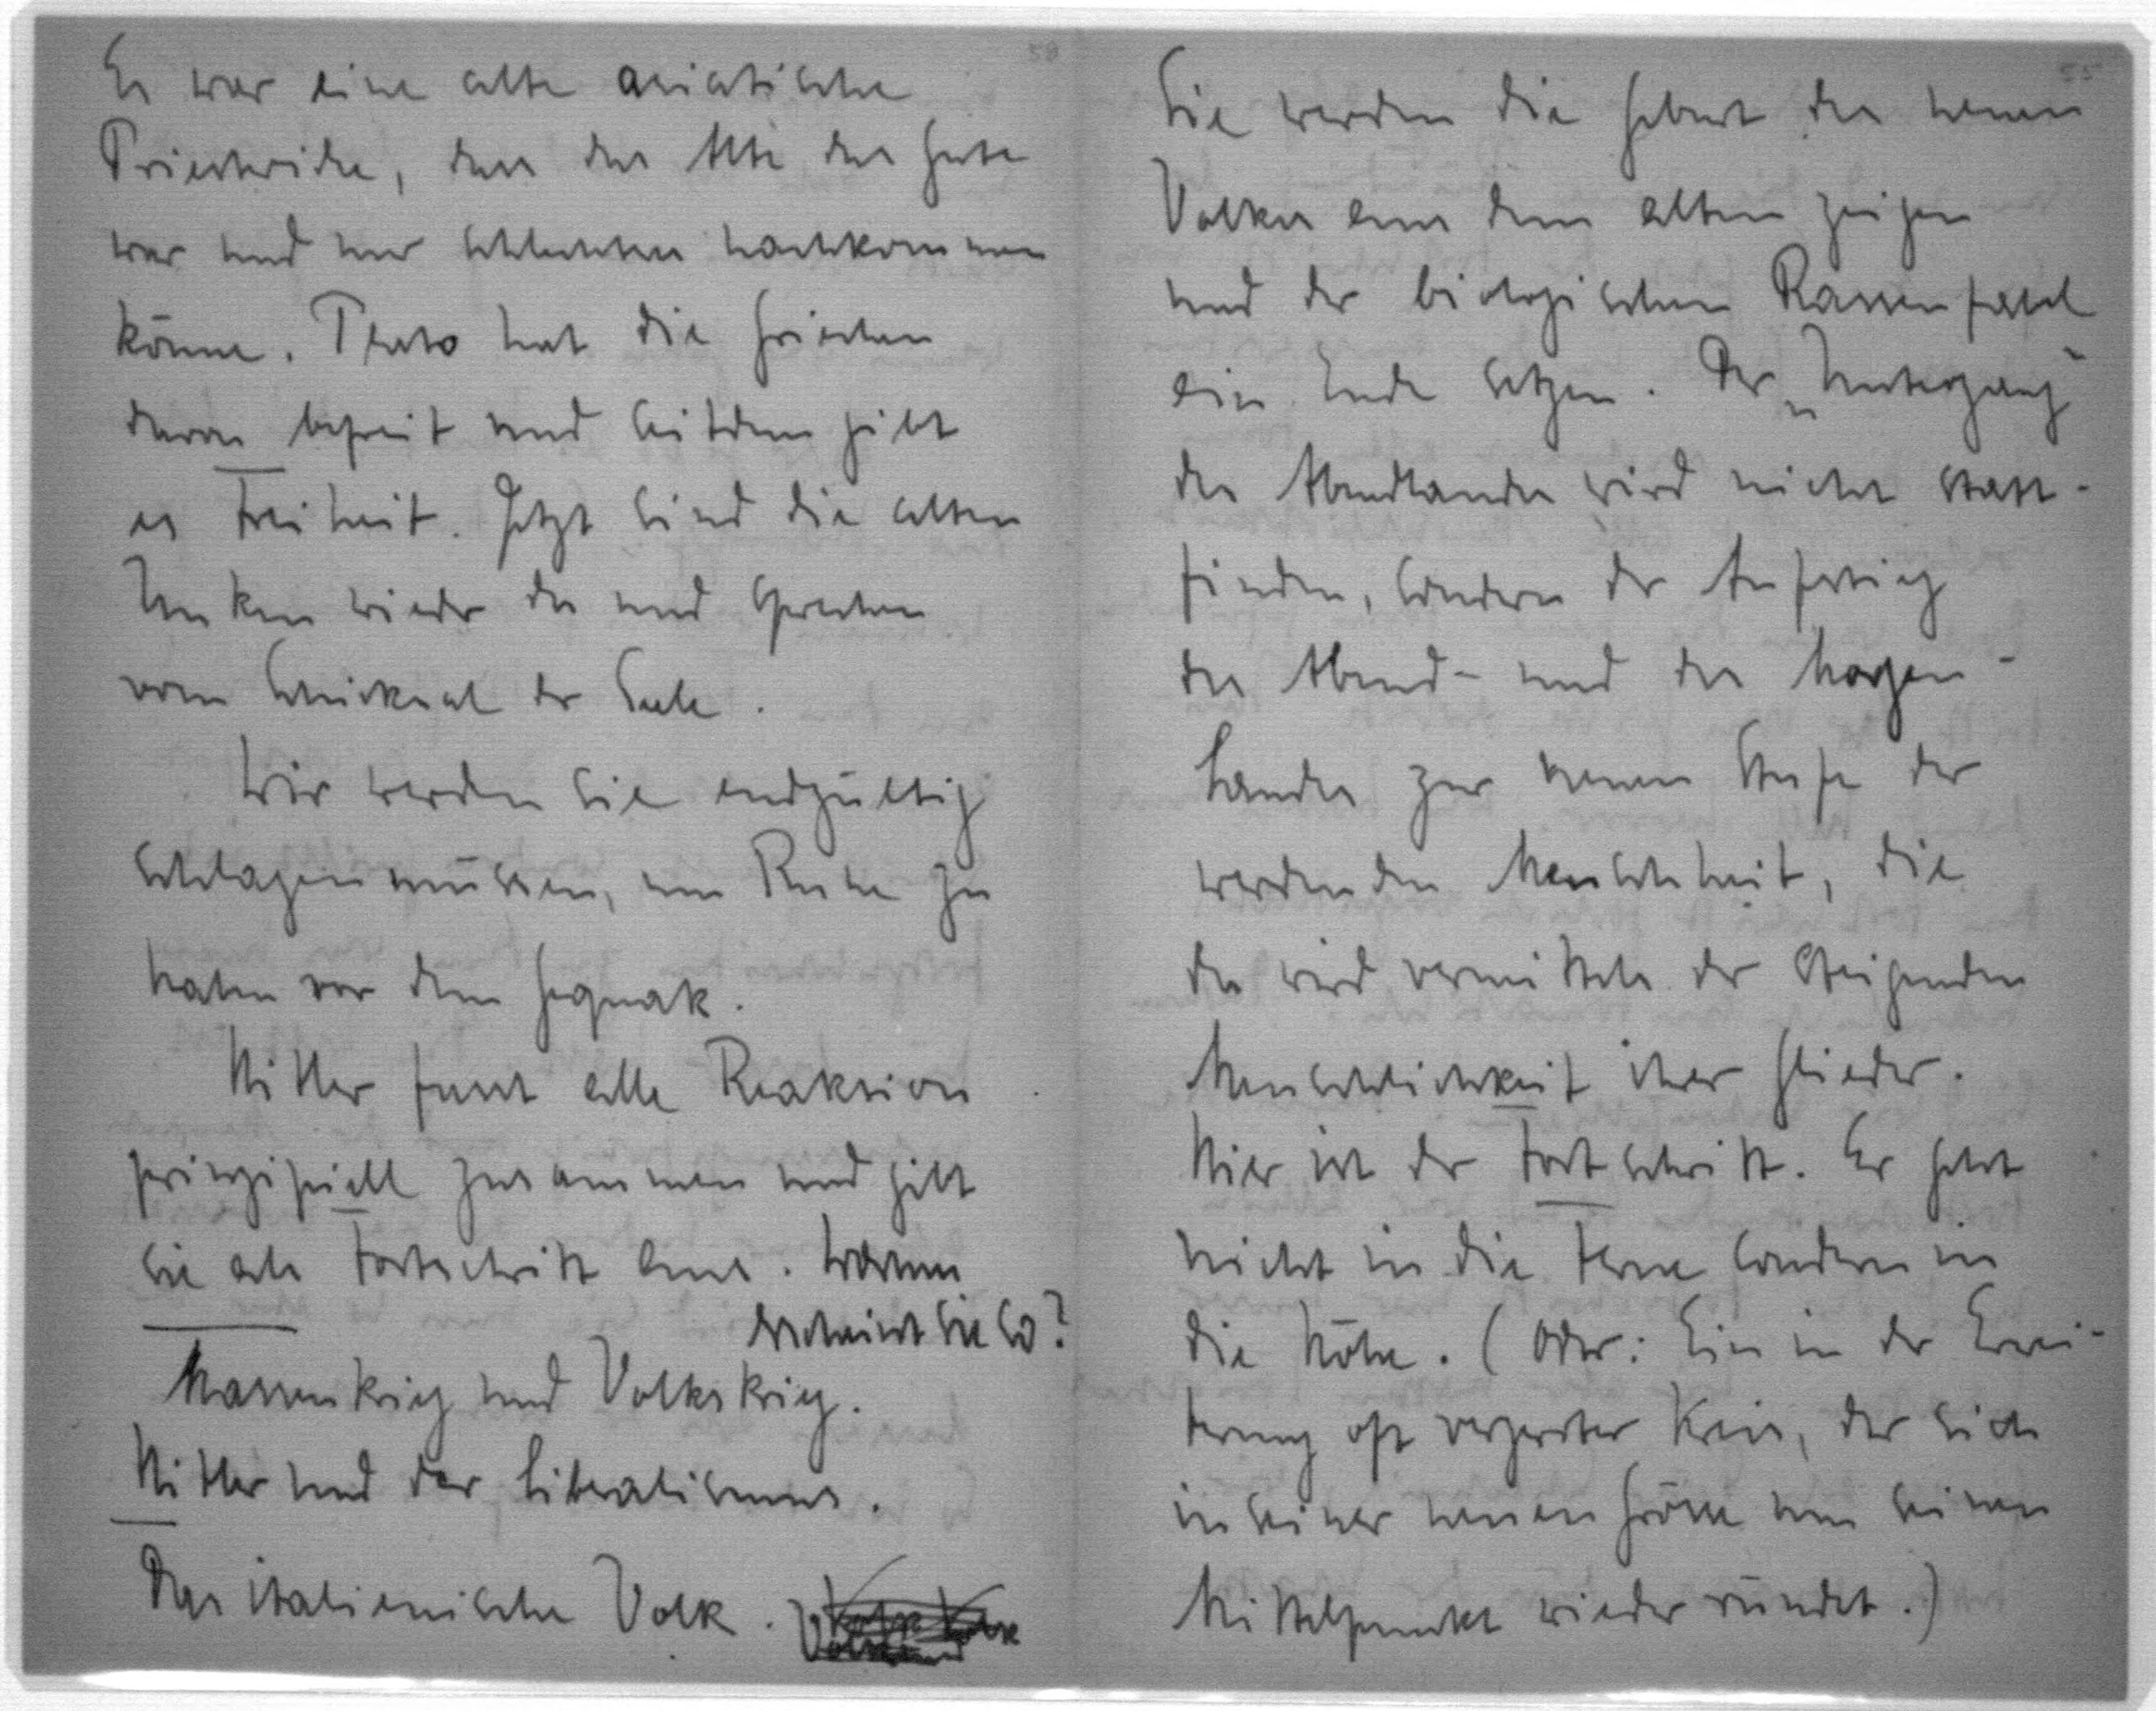 Es war eine alte asiatische
Priesteridee, dass das Alte das Gute
war und nur Schlechtes nachkommen
könne. Plato hat die Griechen
davon befreit und seitdem gibt
es Freiheit. Jetzt sind die alten
Unken wieder da und sprechen
vom Schicksal der Seele.
Wir werden sie endgültig
schlagen müssen, um Ruhe zu
haben vor dem Gequak.
Hitler fasst alle Reaktion
prinzipiell zusammen und gibt
sie als Fortschritt aus. Warum
erscheint sie so?
Massenkrieg und Volkskrieg.
Hitler und der Liberalismus.
Das italienische Volk.
Sie werden die Geburt des neuen
Volkes aus dem alten zeigen
und der biologischen Rassenfabel
ein Ende setzen. Der „Untergang"
des Abendlandes wird nicht statt-
finden, sondern der Aufstieg
des Abend- und des Morgen-
landes zur neuen Stufe der
werdenden Menschheit, die
da wird vermittels der steigenden
Menschlichkeit ihrer Glieder.
Hier ist der Fortschritt. Er geht
nicht in die Ferne sondern in
die Höhe. (Oder: Ein in der Erwei-
terung oft verzerrter Kreis, der sich
in seiner neuen Grösse um seinen
Mittelpunkt wieder ründet.)